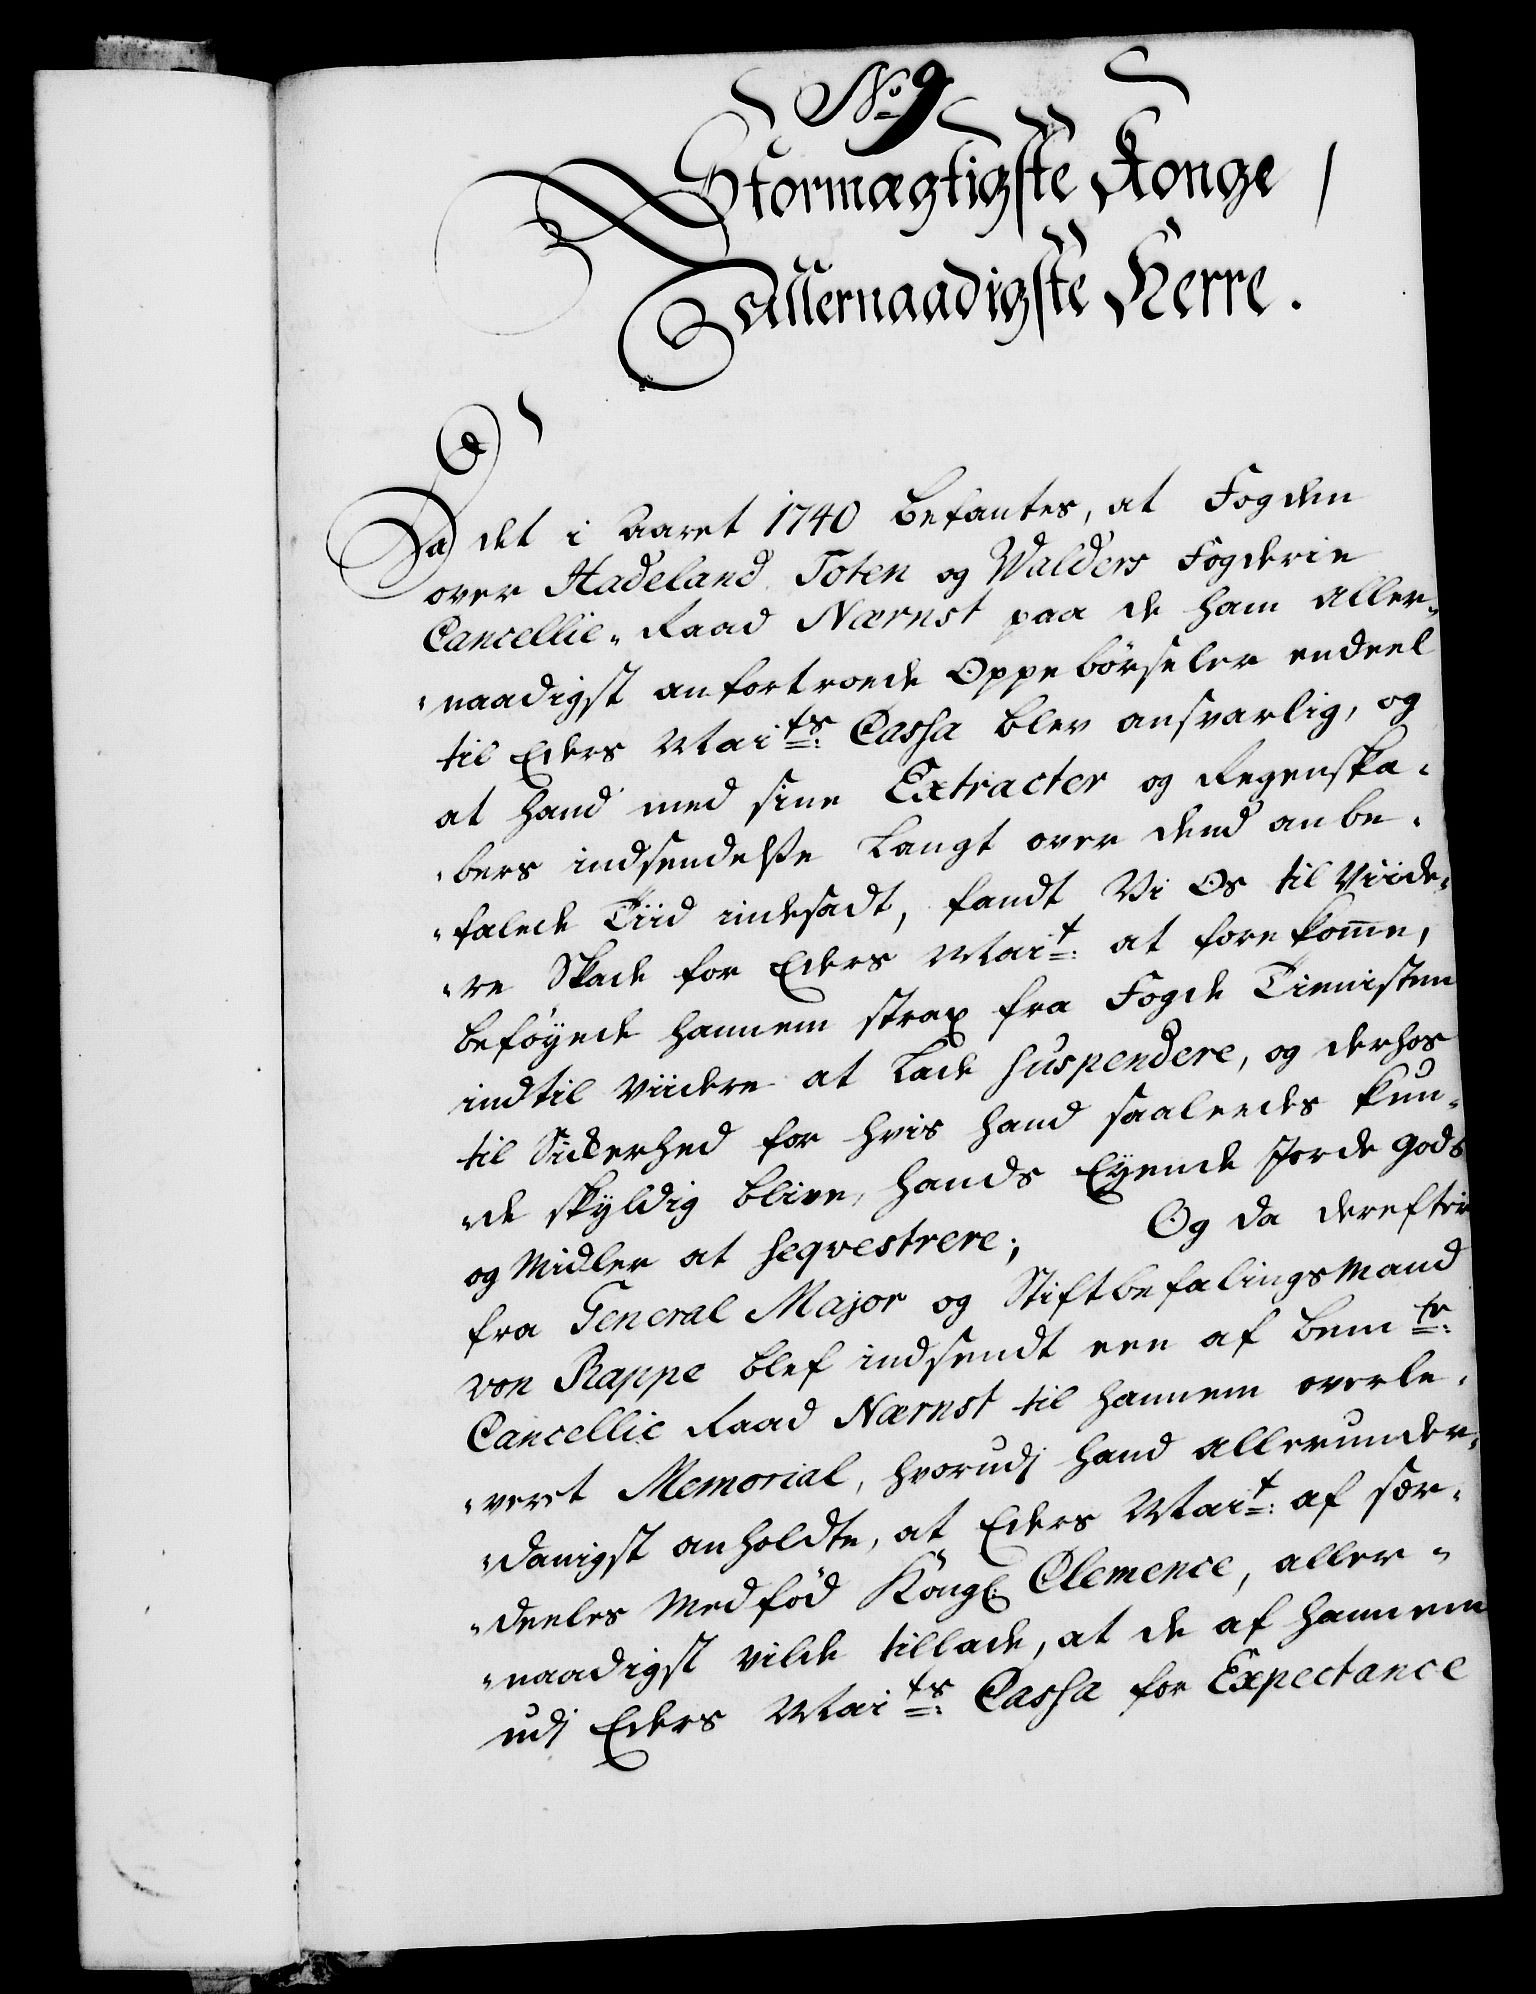 No 9
Stormægtigste Konge /
Allernaadigste Herre.
Da det i Aaret 1740 befantes, at Fogden
over Hadeland Toten og Walders Fogderie
Cancellie-Raad Nærnst paa de ham aller-
naadigst anfortroede Oppebörseler endeel
til Eders Maits: Cassa blev ansvarlig, og
at hand med sine Extracter og Regenska-
bers indsendelse langt over dend anbe-
falede Tiid udesadt, fandt Vi Os til Viide-
re Skade for Eders Mait: at forekom̅e,
beföyede hannem strax fra Fogde Tienisten
indtil Viidere at lade suspendere, og derhos
til Sickerhed for hvis hand saaledes kun-
de skyldig blive, hands Eyende Jorde Gods
og Midler at seqvestrere; Og da derefter
fra General Major og Stiftbefalings Mand
von Rappe blef indsendt een af bemte:
Cancellie Raad Nærnst til hannem overle-
veret Memorial, hvorudj hand allerunder-
danigst anholdte, at Eders Mait: af sær-
deeles Medfød Kongl: Clemence, aller-
naadigst vilde tillade, at de af hannem
udj Eders Maits: Cassa for Expectance